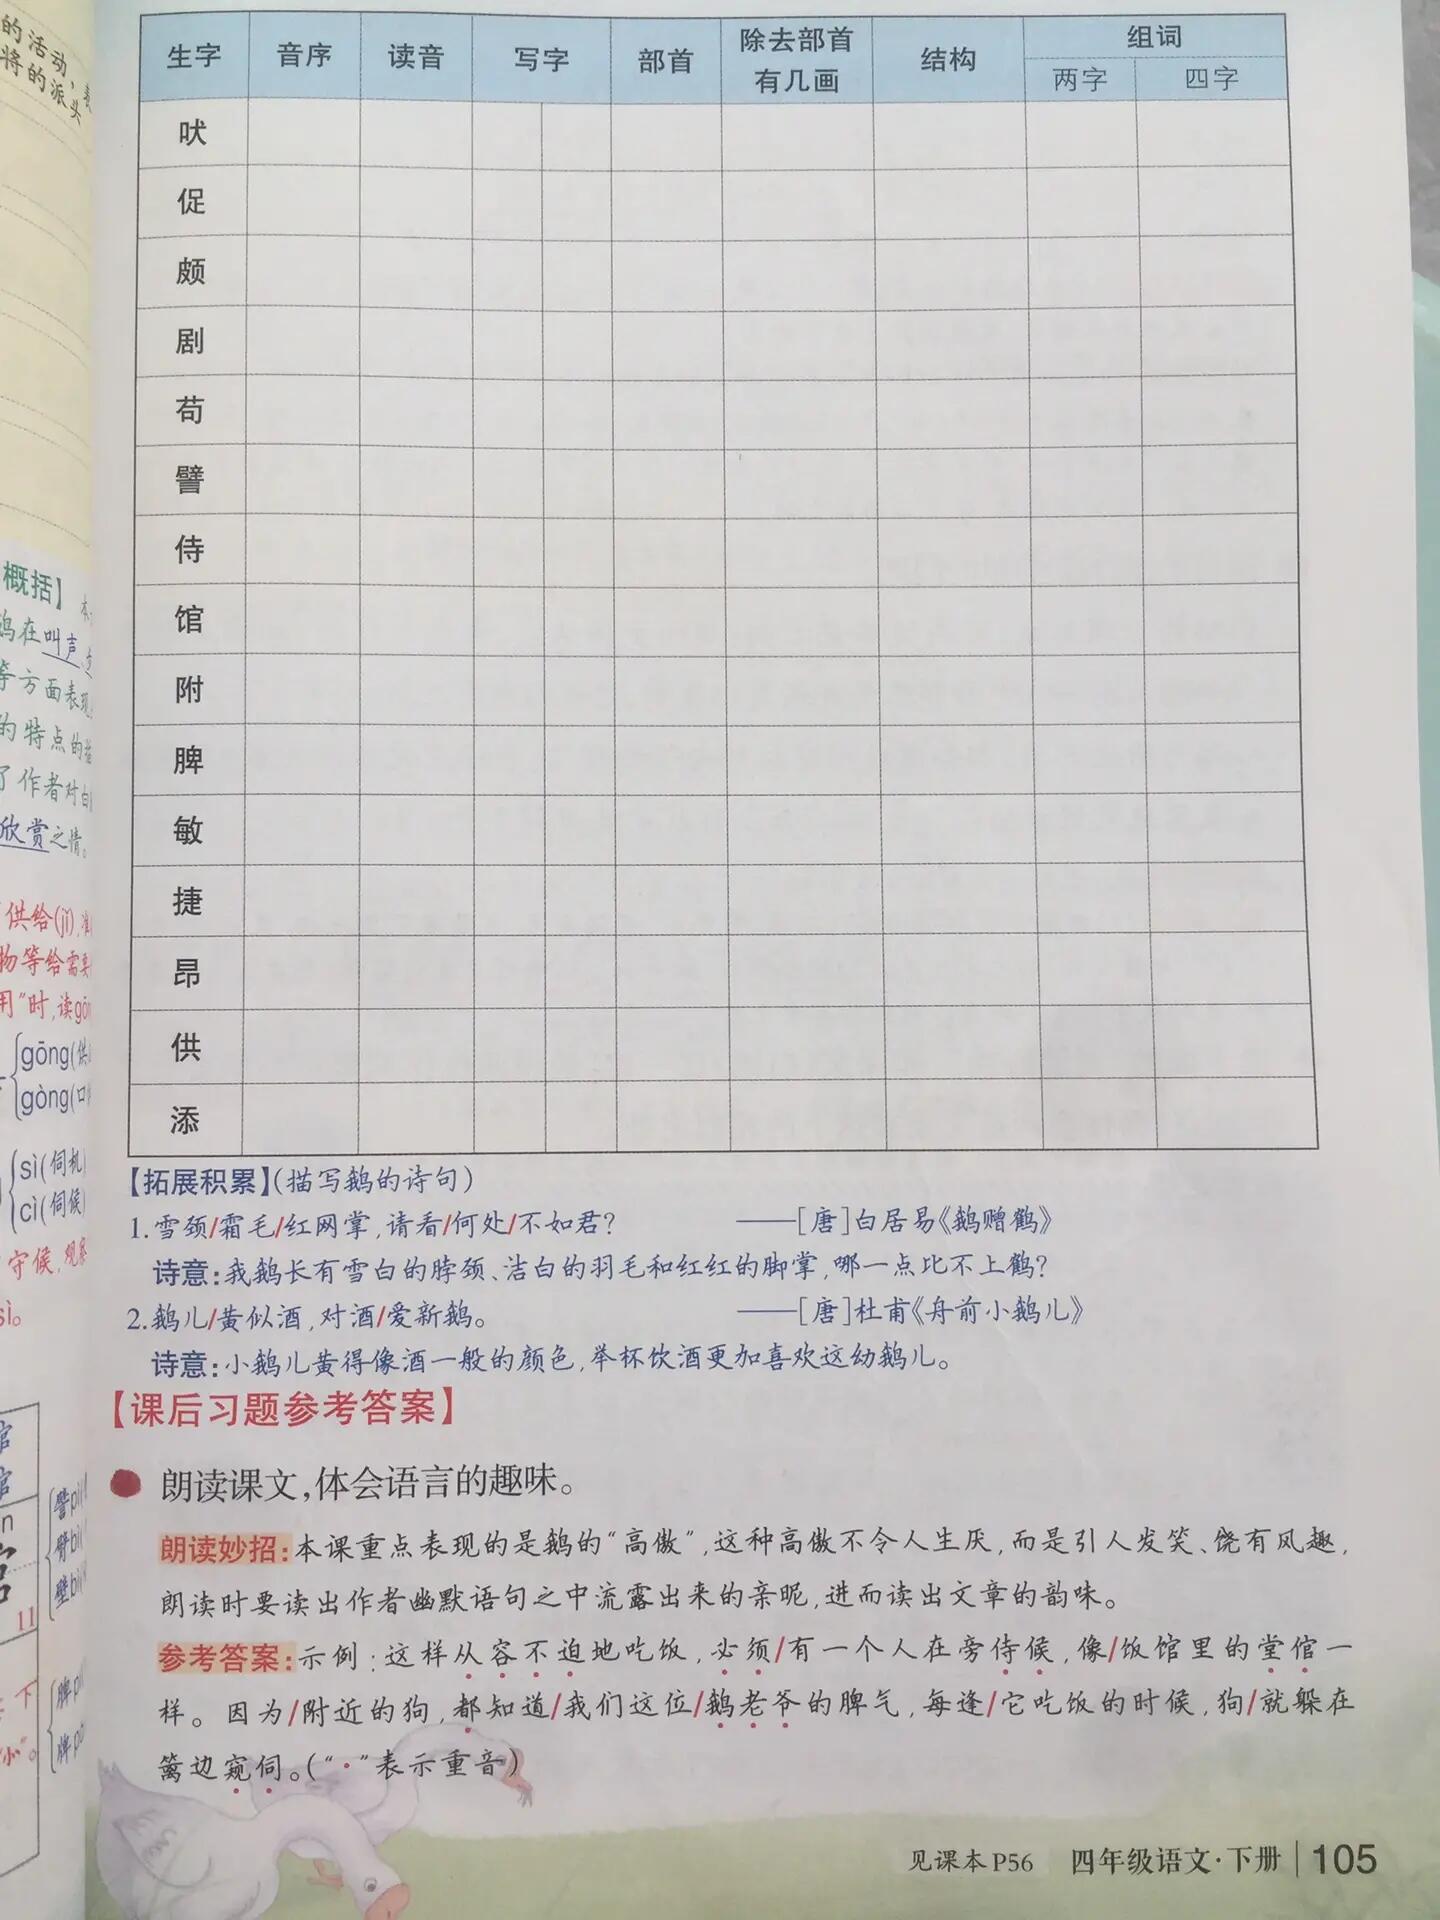 的活动,表
将的派头
概括】
鹅在叫声、步
等方面表现
的特点的描
了作者对白
欣赏之情。
供给(jǐ),准
物等给需要
用"时,读gōng
gōng(供
gòng(口供
sì(伺机
cì(伺候
守候,观察
sì。
馆
11
譬pì
臂bì
壁bì
脾pí
生字 音序 读音 写字 部首 除去部首有几画 结构 组词
两字 四字
吠
促
颇
剧
苟
譬
侍
馆
附
脾
敏
捷
昂
供
添
【拓展积累】(描写鹅的诗句)
1.雪颈/霜毛/红网掌,请看/何处/不如君? ——[唐]白居易《鹅赠鹤》
诗意:我鹅长有雪白的脖颈、洁白的羽毛和红红的脚掌,哪一点比不上鹤?
2.鹅儿/黄似酒,对酒/爱新鹅。 ——[唐]杜甫《舟前小鹅儿》
诗意:小鹅儿黄得像酒一般的颜色,举杯饮酒更加喜欢这幼鹅儿。
【课后习题参考答案】
朗读课文,体会语言的趣味。
朗读妙招:本课重点表现的是鹅的“高傲”,这种高傲不令人生厌,而是引人发笑、饶有风趣,
朗读时要读出作者幽默语句之中流露出来的亲昵,进而读出文章的韵味。
参考答案:示例:这样从容不迫地吃饭,必须/有一个人在旁侍候,像/饭馆里的堂倌一
样。因为/附近的狗,都知道/我们这位/鹅老爷的脾气,每逢/它吃饭的时候,狗/就躲在
篱边窥伺。(“·”表示重音)
见课本P56 四年级语文·下册 105